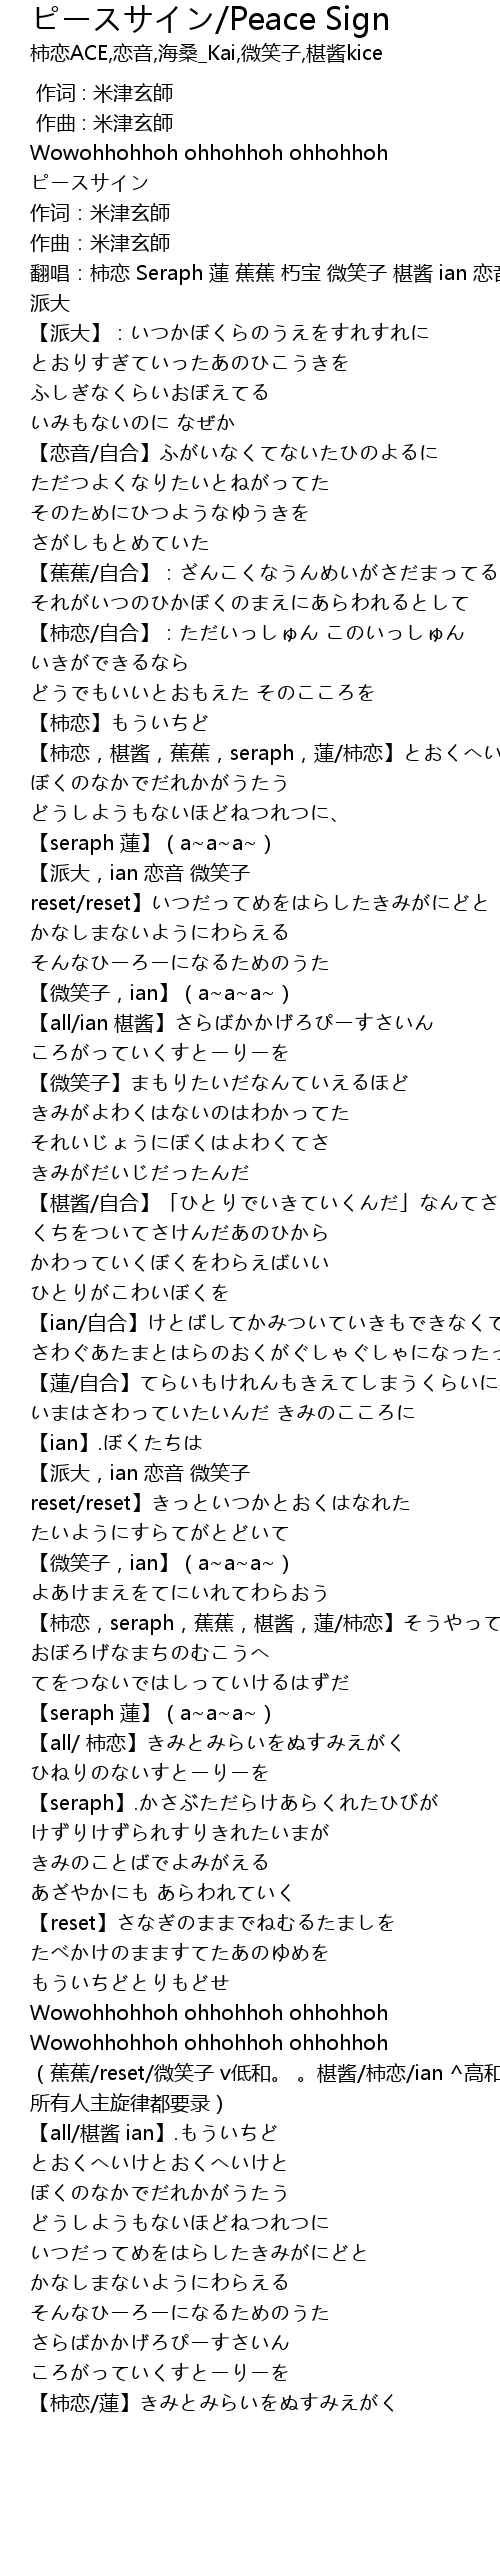 ピースサイン/Peace Sign
柿恋ACE,恋音,海桑_Kai,微笑子,椹酱kice
作词 : 米津玄師
作曲 : 米津玄師
Wowohhohhoh ohhohhoh ohhohhoh
ピースサイン
作词：米津玄師
作曲：米津玄師
翻唱：柿恋 Seraph 蓮 蕉蕉 朽宝 微笑子 椹酱 ian 恋音
派大
【派大】：いつかぼくらのうえをすれすれに
とおりすぎていったあのひこうきを
ふしぎなくらいおぼえてる
いみもないのに なぜか
【恋音/自合】ふがいなくてないたひのよるに
ただつよくなりたいとねがってた
そのためにひつようなゆうきを
さがしもとめていた
【蕉蕉/自合】：ざんこくなうんめいがさだまってる
それがいつのひかぼくのまえにあらわれるとして
【柿恋/自合】：ただいっしゅん このいっしゅん
いきができるなら
どうでもいいとおもえた そのこころを
【柿恋】もういちど
【柿恋，椹酱，蕉蕉，seraph，蓮/柿恋】とおくへい
ぼくのなかでだれかがうたう
どうしようもないほどねつれつに、
【seraph 蓮】（a~a~a~）
【派大，ian 恋音 微笑子
reset/reset】いつだってめをはらしたきみがにどと
かなしまないようにわらえる
そんなひーろーになるためのうた
【微笑子，ian】（a~a~a~）
【all/ian 椹酱】さらばかかげろぴーすさいん
ころがっていくすとーりーを
【微笑子】まもりたいだなんていえるほど
きみがよわくはないのはわかってた
それいじょうにぼくはよわくてさ
きみがだいじだったんだ
【椹酱/自合】「ひとりでいきていくんだ」なんてさ
くちをついてさけんだあのひから
かわっていくぼくをわらえばいい
ひとりがこわいぼくを
【ian/自合】けとばしてかみついていきもできなくて
さわぐあたまとはらのおくがぐしゃぐしゃになったっ
【蓮/自合】てらいもけれんもきえてしまうくらいに
いまはさわっていたいんだ きみのこころに
【ian】.ぼくたちは
【派大，ian 恋音 微笑子
reset/reset】きっといつかとおくはなれた
たいようにすらてがとどいて
【微笑子，ian】（a~a~a~）
よあけまえをてにいれてわらおう
【柿恋，seraph，蕉蕉，椹酱，蓮/柿恋】そうやって
おぼろげなまちのむこうへ
てをつないではしっていけるはずだ
【seraph 蓮】（a~a~a~）
【all/ 柿恋】きみとみらいをぬすみえがく
ひねりのないすとーりーを
【seraph】.かさぶただらけあらくれたひびが
けずりけずられすりきれたいまが
きみのことばでよみがえる
あざやかにも あらわれていく
【reset】さなぎのままでねむるたましを
たべかけのまますてたあのゆめを
もういちどとりもどせ
Wowohhohhoh ohhohhoh ohhohhoh
Wowohhohhoh ohhohhoh ohhohhoh
（蕉蕉/reset/微笑子 v低和。 。椹酱/柿恋/ian ^高和
所有人主旋律都要录）
【all/椹酱 ian】.もういちど
とおくへいけとおくへいけと
ぼくのなかでだれかがうたう
どうしようもないほどねつれつに
いつだってめをはらしたきみがにどと
かなしまないようにわらえる
そんなひーろーになるためのうた
さらばかかげろぴーすさいん
ころがっていくすとーりーを
【柿恋/蓮】きみとみらいをぬすみえがく